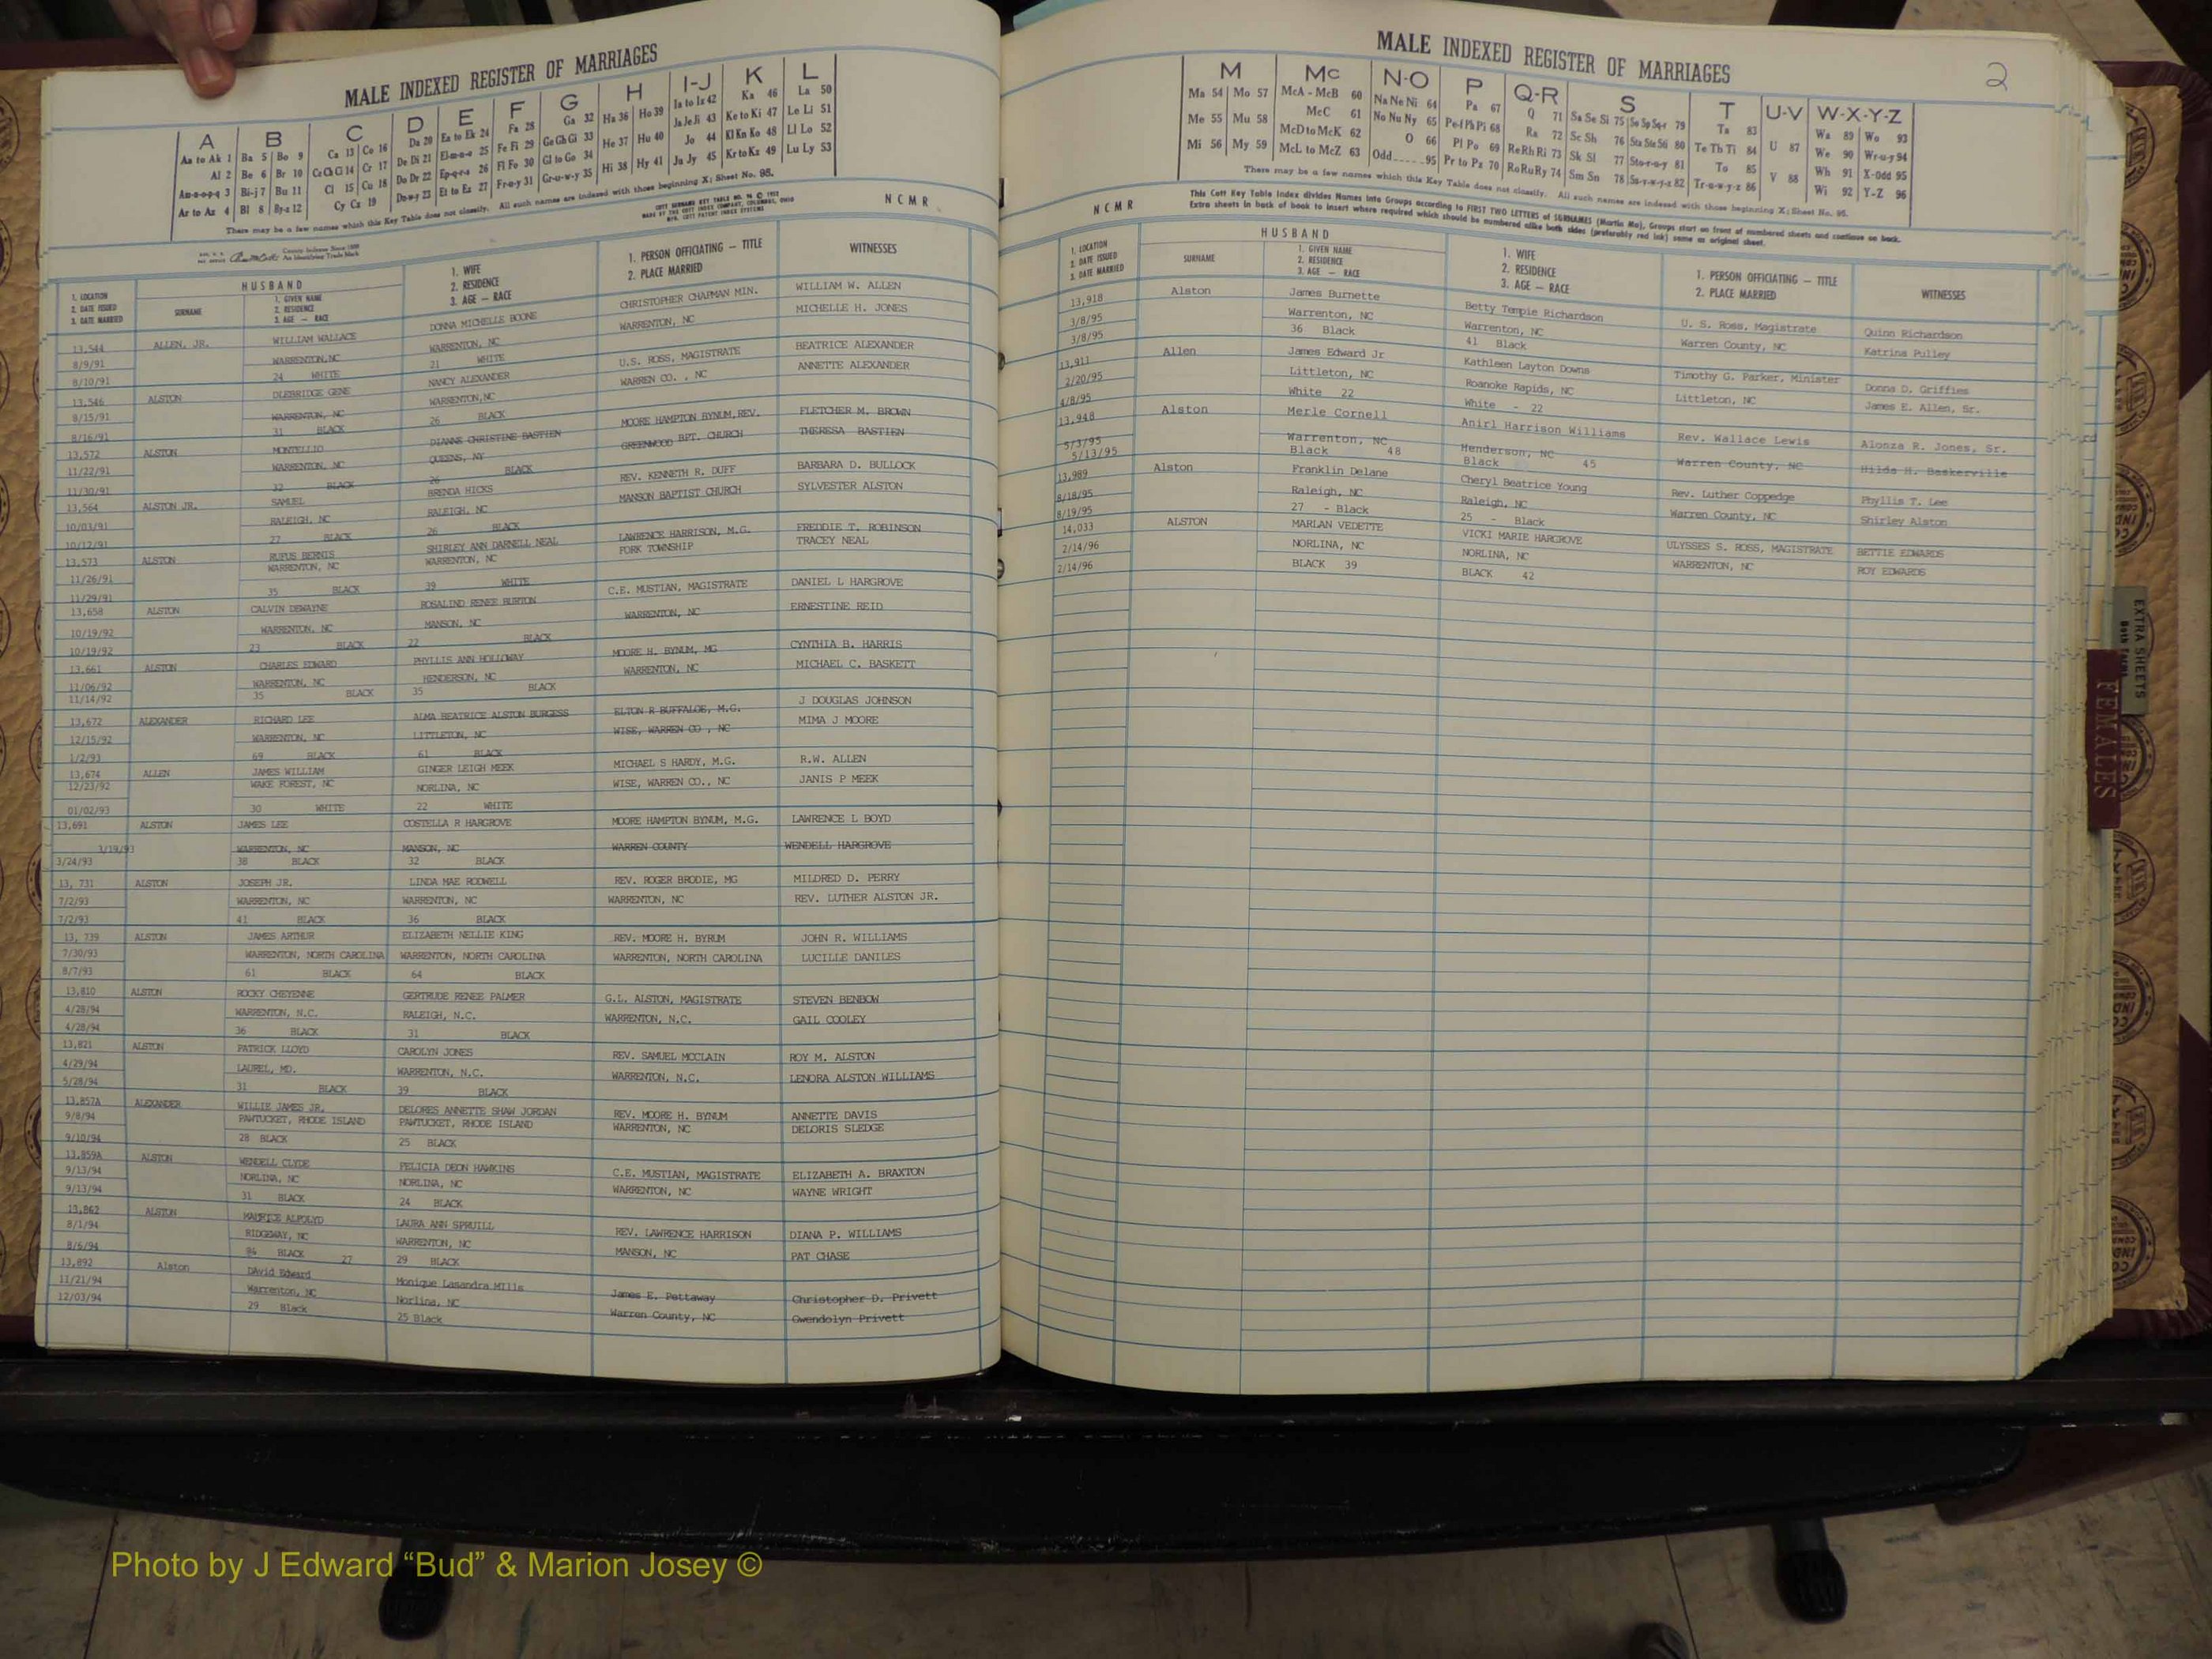 MALE INDEXED REGISTER OF MARRIAGES
A B C D E F G H I-J K L
Aa to Ak 1 Ba 5 Bo 9 Ca 13 Co 16 Da 20 Ea to Ek 24 Fa 28 Ga 32 Ha 36 Ho 39 Ia to Iz 42 Ka 46 La 50
Al 2 Be 6 Br 10 Ce Ch Ci 14 Cr 17 De Di 21 El-m-n-o 25 Fe Fi 29 Ge Gh Gi 33 He 37 Hu 40 Ja Je Ji 43 Ke to Ki 47 Le Li 51
Am-n-o-p-q 3 Bi-j 7 Bu 11 Cl 15 Cu 18 Do Dr 22 Ep-q-r-s 26 Fl Fo 30 Gl to Go 34 Hi 38 Hy 41 Jo 44 Kl Kn Ko 48 Ll Lo 52
Ar to Az 4 Bl 8 By-z 12 Cy Cz 19 Du-w-y 23 Et to Ez 27 Fr-u-y 31 Gr-u-w-y 35 Ju Jy 45 Kr to Kz 49 Lu Ly 53
There may be a few names which this Key Table does not classify. All such names are indexed with those beginning X; Sheet No. 95.
NCMR
HUSBAND
1. LOCATION 2. DATE ISSUED 3. DATE MARRIED
SURNAME
1. GIVEN NAME 2. RESIDENCE 3. AGE — RACE
1. WIFE 2. RESIDENCE 3. AGE — RACE
1. PERSON OFFICIATING — TITLE 2. PLACE MARRIED
WITNESSES
13,544 ALLEN, JR. WILLIAM WALLACE DONNA MICHELLE BOONE CHRISTOPHER CHAPMAN MIN. WILLIAM W. ALLEN
8/9/91 WARRENTON,NC WARRENTON, NC WARRENTON, NC MICHELLE H. JONES
8/10/91 24 WHITE 21 WHITE
13,546 ALSTON DLEBRIDGE GENE NANCY ALEXANDER U.S. ROSS, MAGISTRATE BEATRICE ALEXANDER
8/15/91 WARRENTON, NC WARRENTON,NC WARREN CO. , NC ANNETTE ALEXANDER
8/16/91 31 BLACK 26 BLACK
13,572 ALSTON MONTELLIO DIANNE CHRISTINE BASTIEN MOORE HAMPTON BYNUM,REV. FLETCHER M. BROWN
11/22/91 WARRENTON, NC QUEENS, NY GREENWOOD BPT. CHURCH THERESA BASTIEN
11/30/91 32 BLACK 26 BLACK
13,564 ALSTON JR. SAMUEL BRENDA HICKS REV. KENNETH R. DUFF BARBARA D. BULLOCK
10/03/91 RALEIGH, NC RALEIGH, NC MANSON BAPTIST CHURCH SYLVESTER ALSTON
10/12/91 27 BLACK 26 BLACK
13,573 ALSTON RUFUS BERNIS SHIRLEY ANN DARNELL NEAL LAWRENCE HARRISON, M.G. FREDDIE T. ROBINSON
11/26/91 WARRENTON, NC WARRENTON, NC FORK TOWNSHIP TRACEY NEAL
11/29/91 35 BLACK 39 WHITE
13,658 ALSTON CALVIN DEWAYNE ROSALIND RENEE BURTON C.E. MUSTIAN, MAGISTRATE DANIEL L HARGROVE
10/19/92 WARRENTON, NC MANSON, NC WARRENTON, NC ERNESTINE REID
10/19/92 23 BLACK 22 BLACK
13,661 ALSTON CHARLES EDWARD PHYLLIS ANN HOLLOWAY MOORE H. BYNUM, MG CYNTHIA B. HARRIS
11/06/92 WARRENTON, NC HENDERSON, NC WARRENTON, NC MICHAEL C. BASKETT
11/14/92 35 BLACK 35 BLACK
13,672 ALEXANDER RICHARD LEE ALMA BEATRICE ALSTON BURGESS ELTON R BUFFALOE, M.G. J DOUGLAS JOHNSON
12/15/92 WARRENTON, NC LITTLETON, NC WISE, WARREN CO , NC MIMA J MOORE
1/2/93 69 BLACK 61 BLACK
13,674 ALLEN JAMES WILLIAM GINGER LEIGH MEEK MICHAEL S HARDY, M.G. R.W. ALLEN
12/23/92 WAKE FOREST, NC NORLINA, NC WISE, WARREN CO., NC JANIS P MEEK
01/02/93 30 WHITE 22 WHITE
13,691 ALSTON JAMES LEE COSTELLA R HARGROVE MOORE HAMPTON BYNUM, M.G. LAWRENCE L BOYD
3/19/93 WARRENTON, NC MANSON, NC WARREN COUNTY WENDELL HARGROVE
3/24/93 38 BLACK 32 BLACK
13, 731 ALSTON JOSEPH JR. LINDA MAE RODWELL REV. ROGER BRODIE, MG MILDRED D. PERRY
7/2/93 WARRENTON, NC WARRENTON, NC WARRENTON, NC REV. LUTHER ALSTON JR.
7/2/93 41 BLACK 36 BLACK
13, 739 ALSTON JAMES ARTHUR ELIZABETH NELLIE KING REV. MOORE H. BYRUM JOHN R. WILLIAMS
7/30/93 WARRENTON, NORTH CAROLINA WARRENTON, NORTH CAROLINA WARRENTON, NORTH CAROLINA LUCILLE DANILES
8/7/93 61 BLACK 64 BLACK
13,810 ALSTON ROCKY CHEYENNE GERTRUDE RENEE PALMER G.L. ALSTON, MAGISTRATE STEVEN BENBOW
4/28/94 WARRENTON, N.C. RALEIGH, N.C. WARRENTON, N.C. GAIL COOLEY
4/28/94 36 BLACK 31 BLACK
13,821 ALSTON PATRICK LLOYD CAROLYN JONES REV. SAMUEL MCCLAIN ROY M. ALSTON
4/29/94 LAUREL, MD. WARRENTON, N.C. WARRENTON, N.C. LENORA ALSTON WILLIAMS
5/28/94 31 BLACK 39 BLACK
13,857A ALEXANDER WILLIE JAMES JR. DELORES ANNETTE SHAW JORDAN REV. MOORE H. BYNUM ANNETTE DAVIS
9/8/94 PAWTUCKET, RHODE ISLAND PAWTUCKET, RHODE ISLAND WARRENTON, NC DELORIS SLEDGE
9/10/94 28 BLACK 25 BLACK
13,859A ALSTON WENDELL CLYDE FELICIA DEON HAWKINS C.E. MUSTIAN, MAGISTRATE ELIZABETH A. BRAXTON
9/13/94 NORLINA, NC NORLINA, NC WARRENTON, NC WAYNE WRIGHT
9/13/94 31 BLACK 24 BLACK
13,862 ALSTON MAURICE LAURA ANN SPRUILL REV. LAWRENCE HARRISON DIANA P. WILLIAMS
8/1/94 RIDGEWAY, NC WARRENTON, NC MANSON, NC PAT CHASE
8/6/94 BLACK 27 29 BLACK
13,892 Alston DAvid Edward Monique Lasandra MIlls James E. Pettaway Christopher D. Privett
11/21/94 Warrenton, NC Norlina, NC Warren County, NC Gwendolyn Privett
12/03/94 29 Black 25 Black
MALE INDEXED REGISTER OF MARRIAGES
2
M Mc N-O P Q-R S T U-V W-X-Y-Z
Ma 54 Mo 57 McA - McB 60 Na Ne Ni 64 Pa 67 Q 71 Sa Se Si 75 So Sp Sq-r 79 Ta 83 U 87 Wa 89 Wo 93
Me 55 Mu 58 McC 61 No Nu Ny 65 Pe-f Ph Pi 68 Ra 72 Sc Sh 76 Sta Ste Sti 80 Te Th Ti 84 V 88 We 90 Wr-u-y 94
Mi 56 My 59 McD to McK 62 O 66 Pl Po 69 Re Rh Ri 73 Sk Sl 77 Sto-r-u-y 81 To 85 Wh 91 X-Odd 95
McL to McZ 63 Odd 95 Pr to Pz 70 Ro Ru Ry 74 Sm Sn 78 Su-v-w-y-z 82 Tr-u-w-y-z 86 Wi 92 Y-Z 96
There may be a few names which this Key Table does not classify. All such names are indexed with those beginning X; Sheet No. 95.
This Cott Key Table Index divides Names into Groups according to FIRST TWO LETTERS of SURNAMES (Martin Ma), Groups start on front of numbered sheets and continue on back.
Extra sheets in back of book to insert where required which should be numbered alike both sides (preferably red ink) same as original sheet.
NCMR
HUSBAND
1. LOCATION 2. DATE ISSUED 3. DATE MARRIED
SURNAME
1. GIVEN NAME 2. RESIDENCE 3. AGE — RACE
1. WIFE 2. RESIDENCE 3. AGE — RACE
1. PERSON OFFICIATING — TITLE 2. PLACE MARRIED
WITNESSES
13,918 Alston James Burnette Betty Temple Richardson U. S. Ross, Magistrate Quinn Richardson
3/8/95 Warrenton, NC Warrenton, NC Warren County, NC Katrina Pulley
3/8/95 36 Black 41 Black
13,911 Allen James Edward Jr Kathleen Layton Downs Timothy G. Parker, Minister Donna D. Griffies
2/20/95 Littleton, NC Roanoke Rapids, NC Littleton, NC James E. Allen, Sr.
4/8/95 White 22 White - 22
13,948 Alston Merle Cornell Anirl Harrison Williams Rev. Wallace Lewis Alonza R. Jones, Sr.
5/3/95 Warrenton, NC Henderson, NC Warren County, NC Hilda H. Baskerville
5/13/95 Black 48 Black 45
13,989 Alston Franklin Delane Cheryl Beatrice Young Rev. Luther Coppedge Phyllis T. Lee
8/18/95 Raleigh, NC Raleigh, NC Warren County, NC Shirley Alston
8/19/95 27 - Black 25 - Black
14,033 ALSTON MARLAN VEDETTE VICKI MARIE HARGROVE ULYSSES S. ROSS, MAGISTRATE BETTIE EDWARDS
2/14/96 NORLINA, NC NORLINA, NC WARRENTON, NC ROY EDWARDS
2/14/96 BLACK 39 BLACK 42
EXTRA SHEETS
FEMALES
Photo by J Edward “Bud” & Marion Josey ©